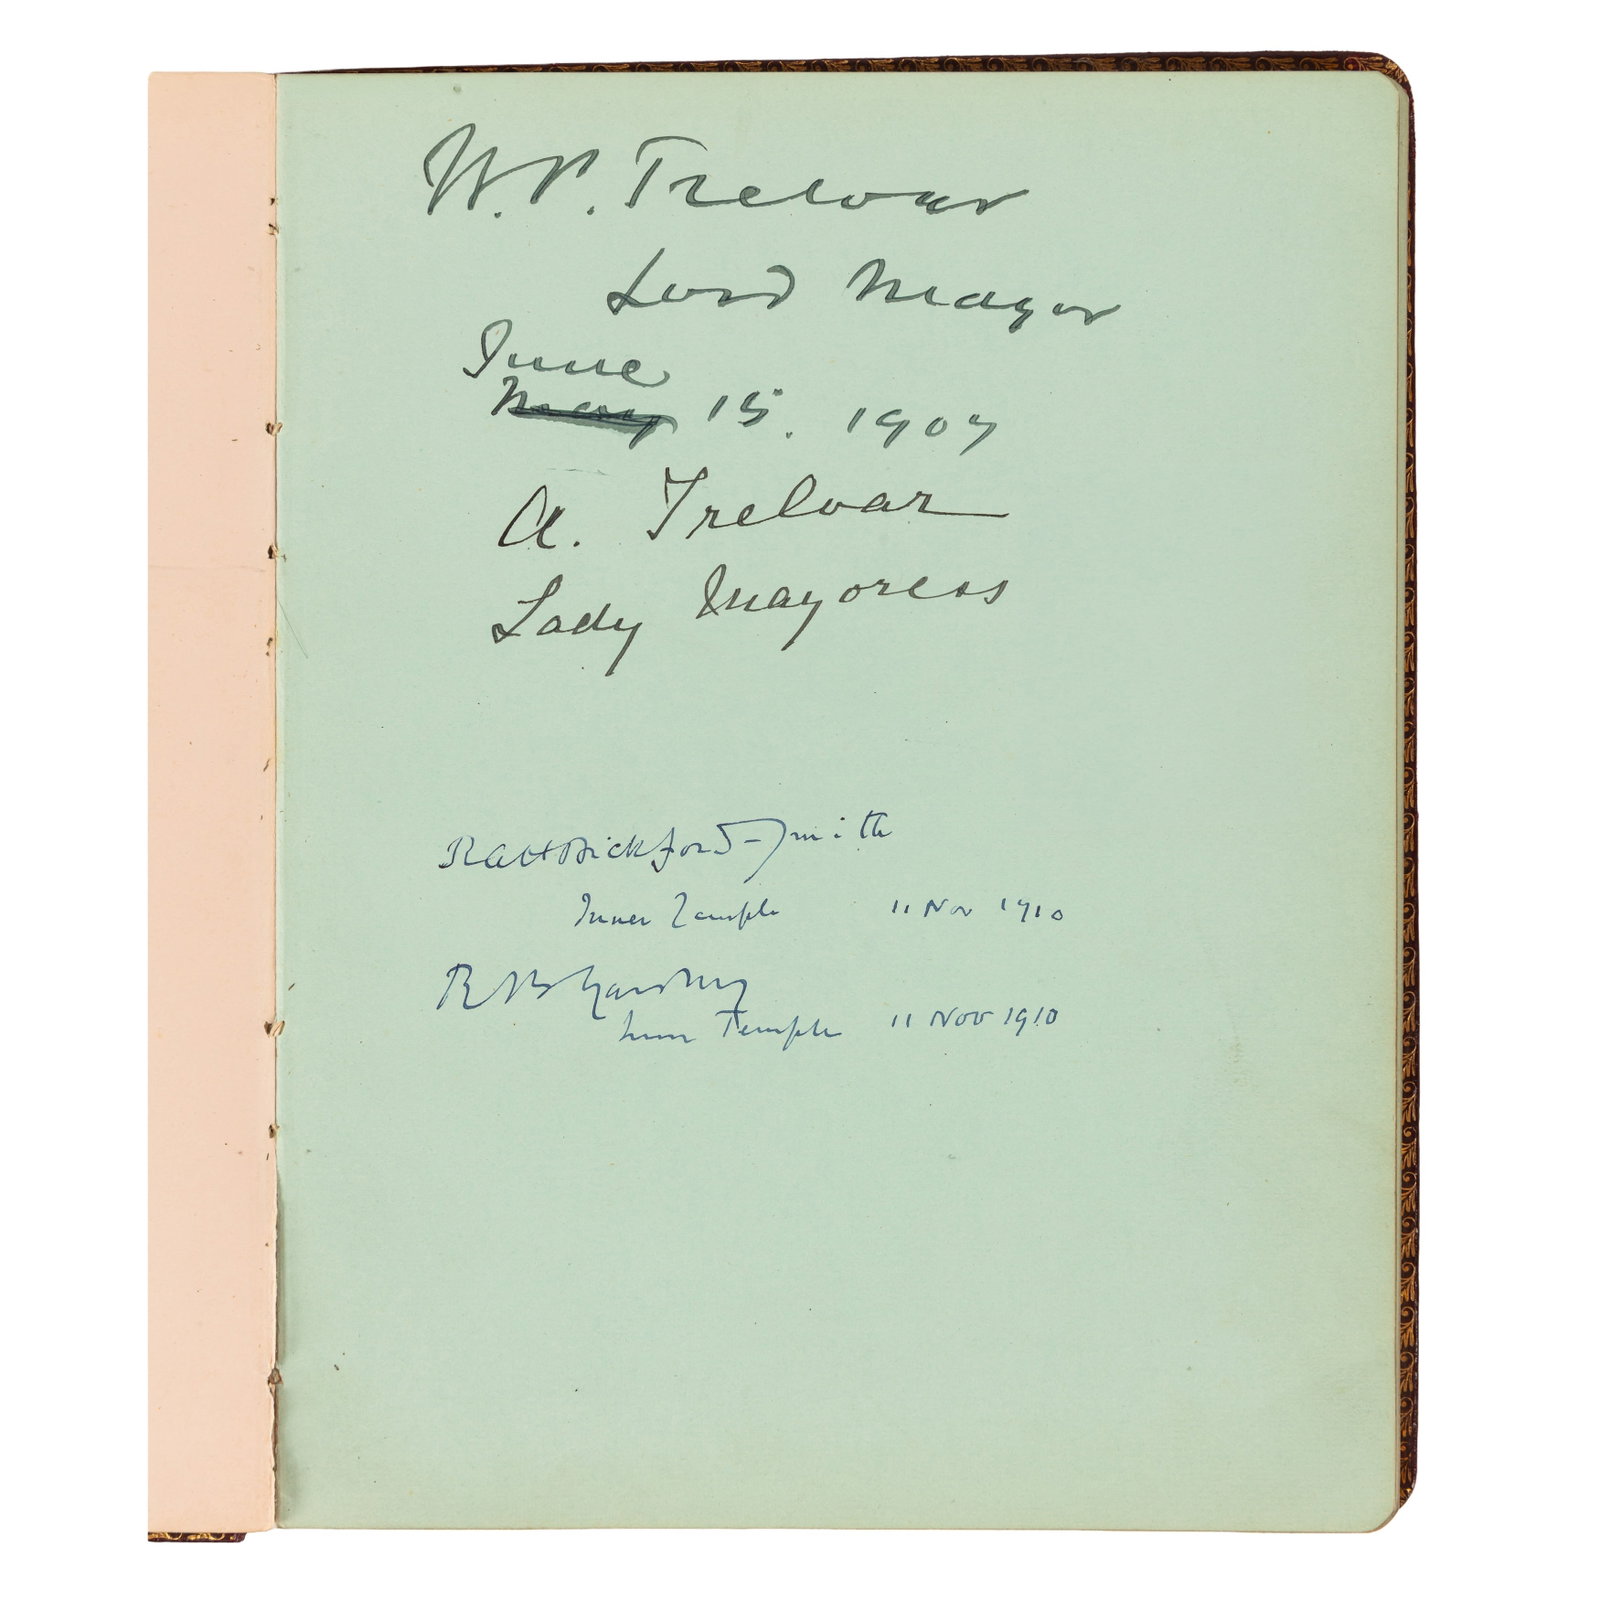 W.P. Treloar
Lord Mayor
June
May 15. 1907
A. Treloar
Lady Mayoress
RAHBickford-Smith
Inner Temple 11 Nov 1910
Inner Temple 11 Nov 1910